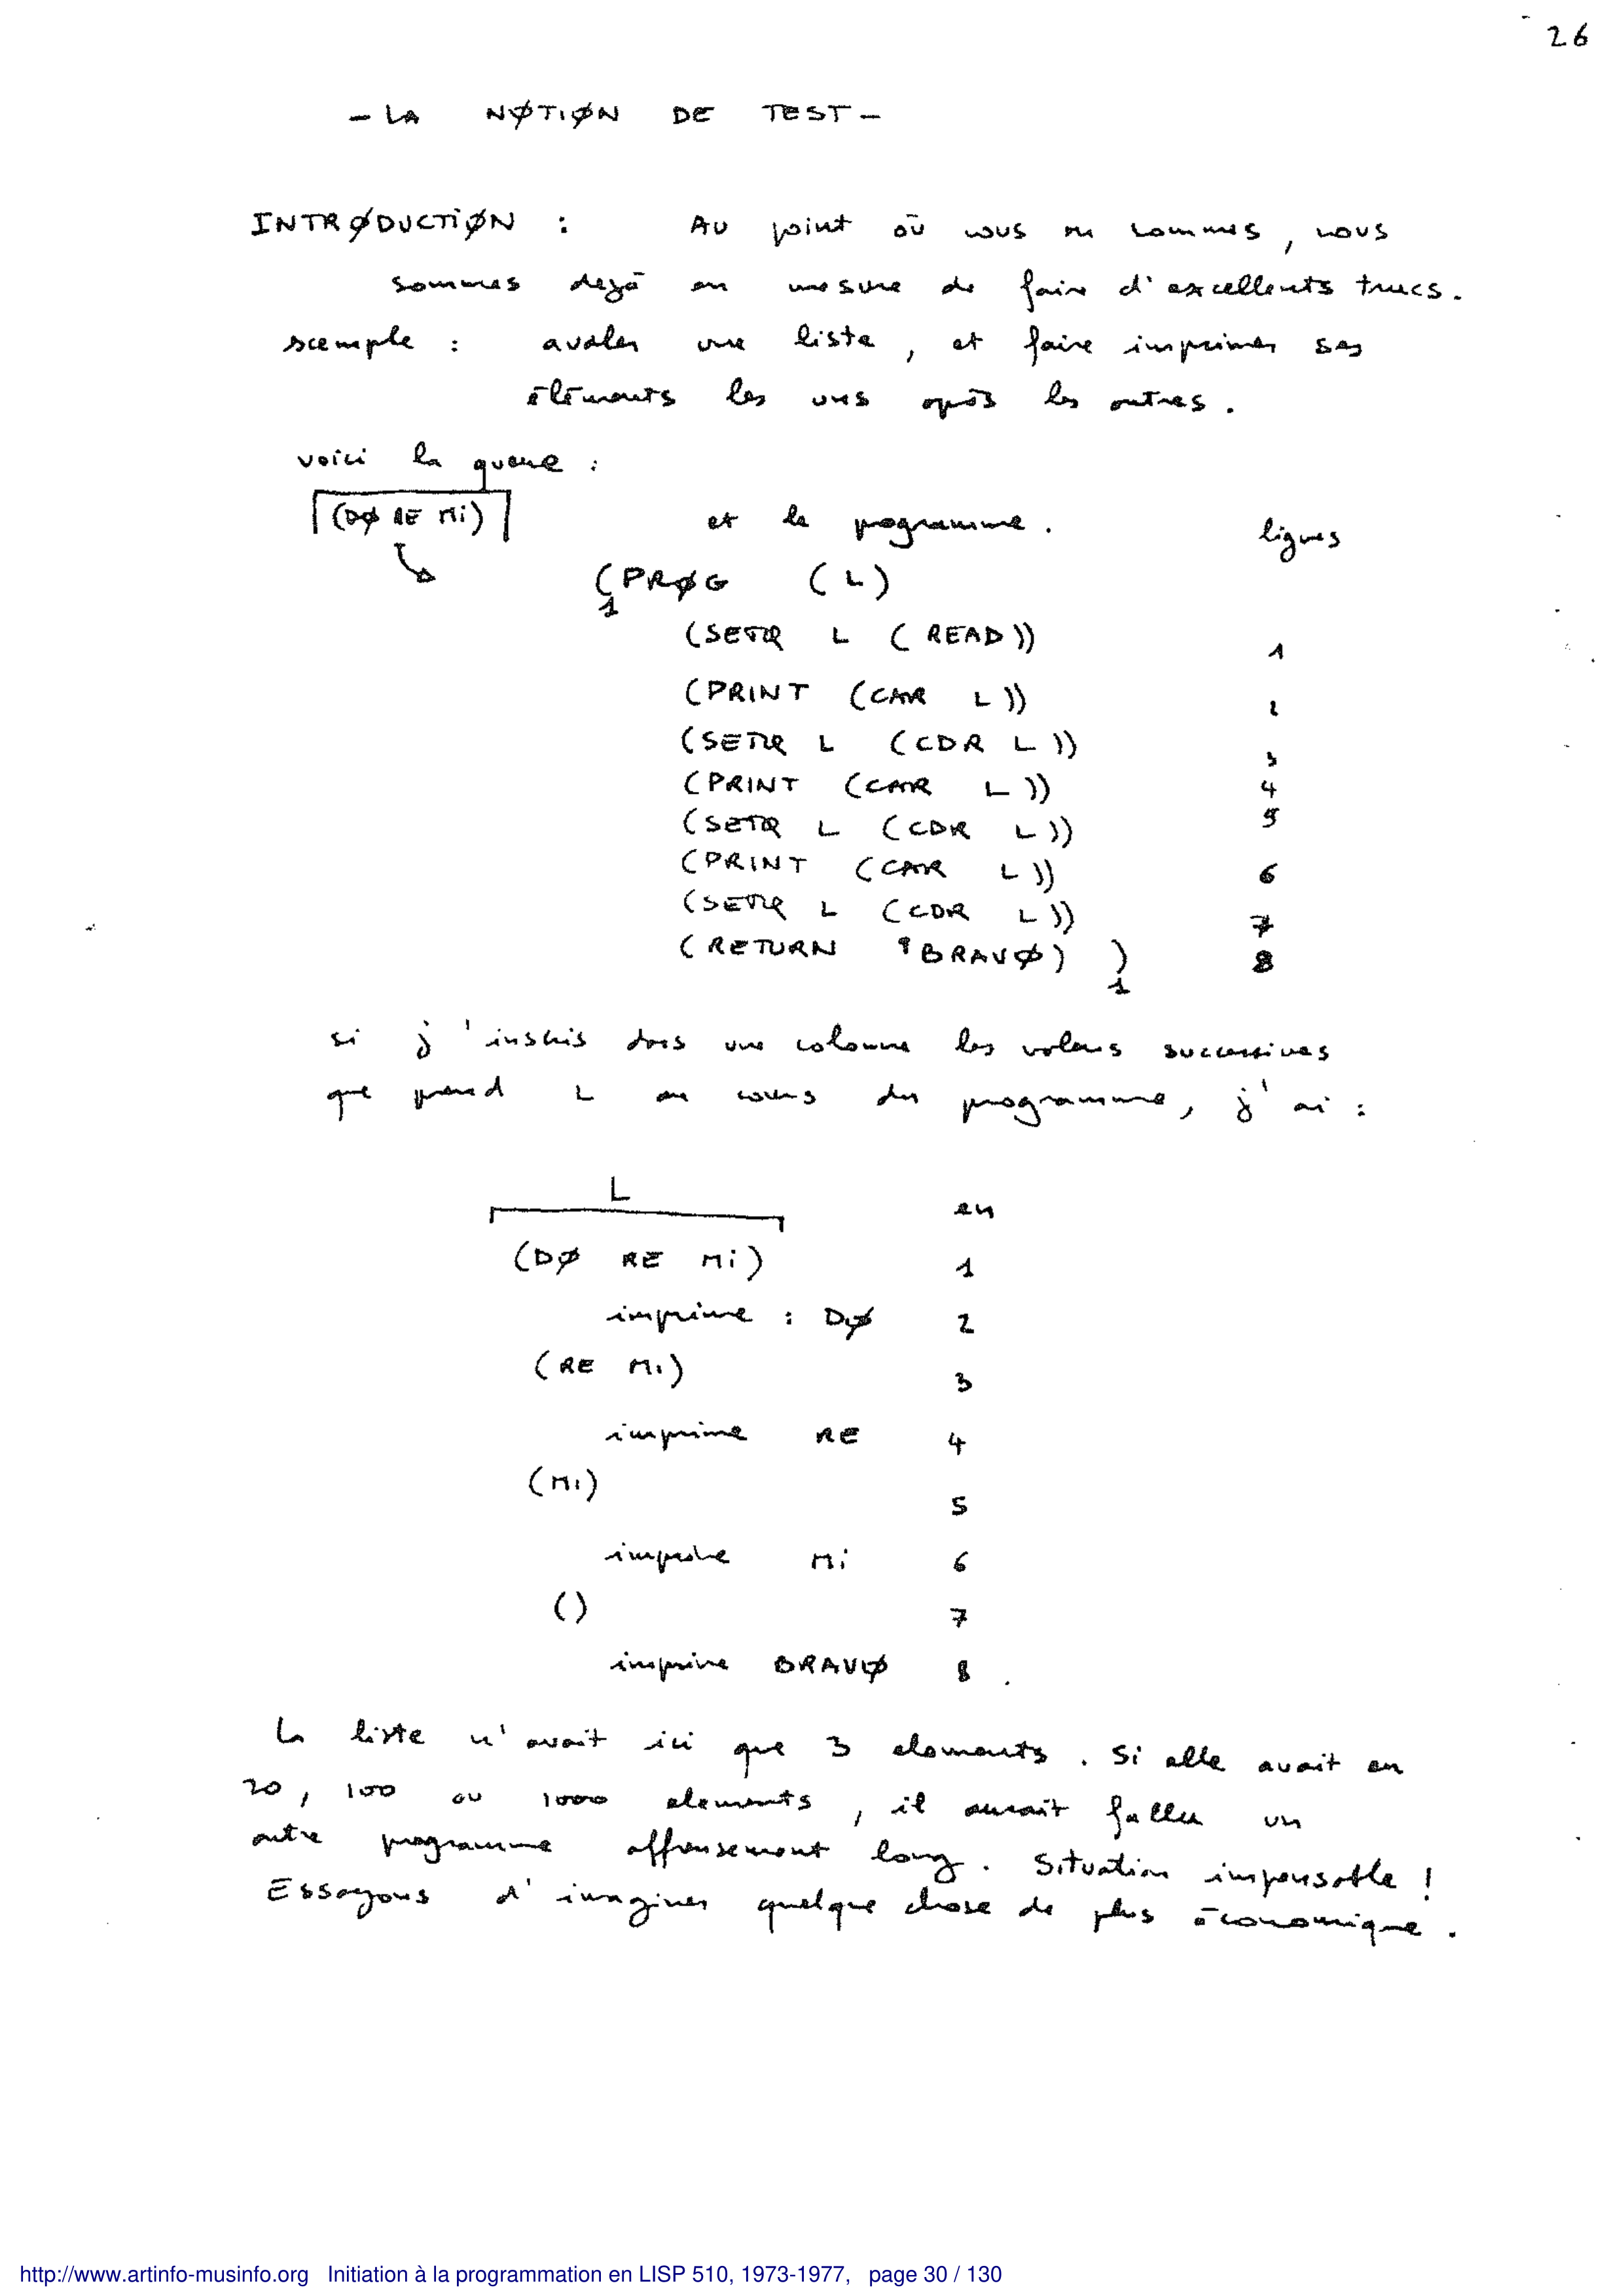 26
- LA NØTIØN DE TEST -
INTRØDUCTIØN : Au point où nous en sommes, nous
sommes dejà en mesure de faire d'excellents trucs.
exemple : avaler une liste, et faire imprimer ses
éléments les uns après les autres.
voici la queue :
(DØ RE Mi) et le programme. lignes
(PRØG (L)
1
(SETQ L (READ)) 1
(PRINT (CAR L)) 2
(SETQ L (CDR L)) 3
(PRINT (CAR L)) 4
(SETQ L (CDR L)) 5
(PRINT (CAR L)) 6
(SETQ L (CDR L)) 7
(RETURN 'BRAVØ) ) 8
1
si j'inscris dans une colonne les valeurs successives
que prend L au cours du programme, j'ai :
L en
(DØ RE Mi) 1
imprime : DØ 2
(RE Mi) 3
imprime RE 4
(Mi) 5
imprime Mi 6
() 7
imprime BRAVØ 8 .
La liste n'avait ici que 3 elements. Si elle avait eu
20, 100 ou 1000 elements, il aurait fallu un
autre programme affreusement long. Situation impensable !
Essayons d'imaginer quelque chose de plus économique.
http://www.artinfo-musinfo.org Initiation à la programmation en LISP 510, 1973-1977, page 30 / 130